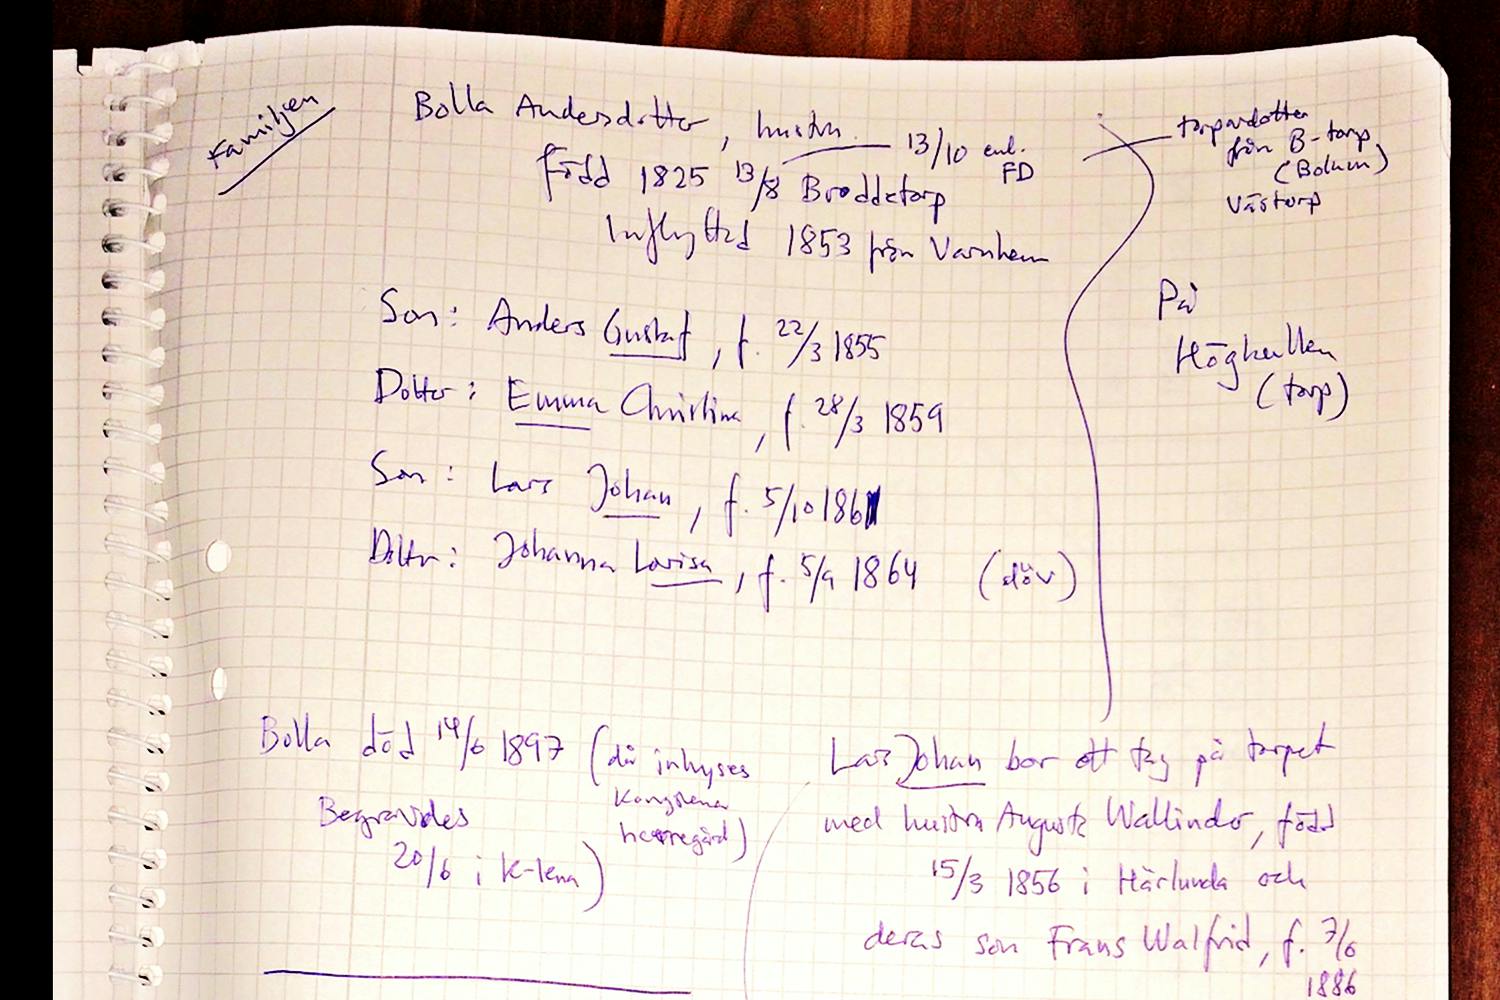 Familjen
Bolla Andersdotter, hustru
13/10 enl.
FD
född 1825 13/8 Broddetorp
Inflyttad 1853 från Varnhem
torpardotter
från B-torp
(Bolum)
Västorp
Son: Anders Gustaf, f. 22/3 1855
Dotter: Emma Christina, f. 28/3 1859
Son: Lars Johan, f. 5/10 1861
Dottr: Johanna Lovisa, f. 5/9 1864 (döv)
På
Högkullen
(torp)
Bolla död 14/6 1897 (då inhyses
Kongslena
herregård)
Begravdes
20/6 i K-lena)
Lars Johan bor ett tag på torpet
med hustru Augusta Wallinder, född
15/3 1856 i Härlunda och
deras son Frans Walfrid, f. 7/6
1886